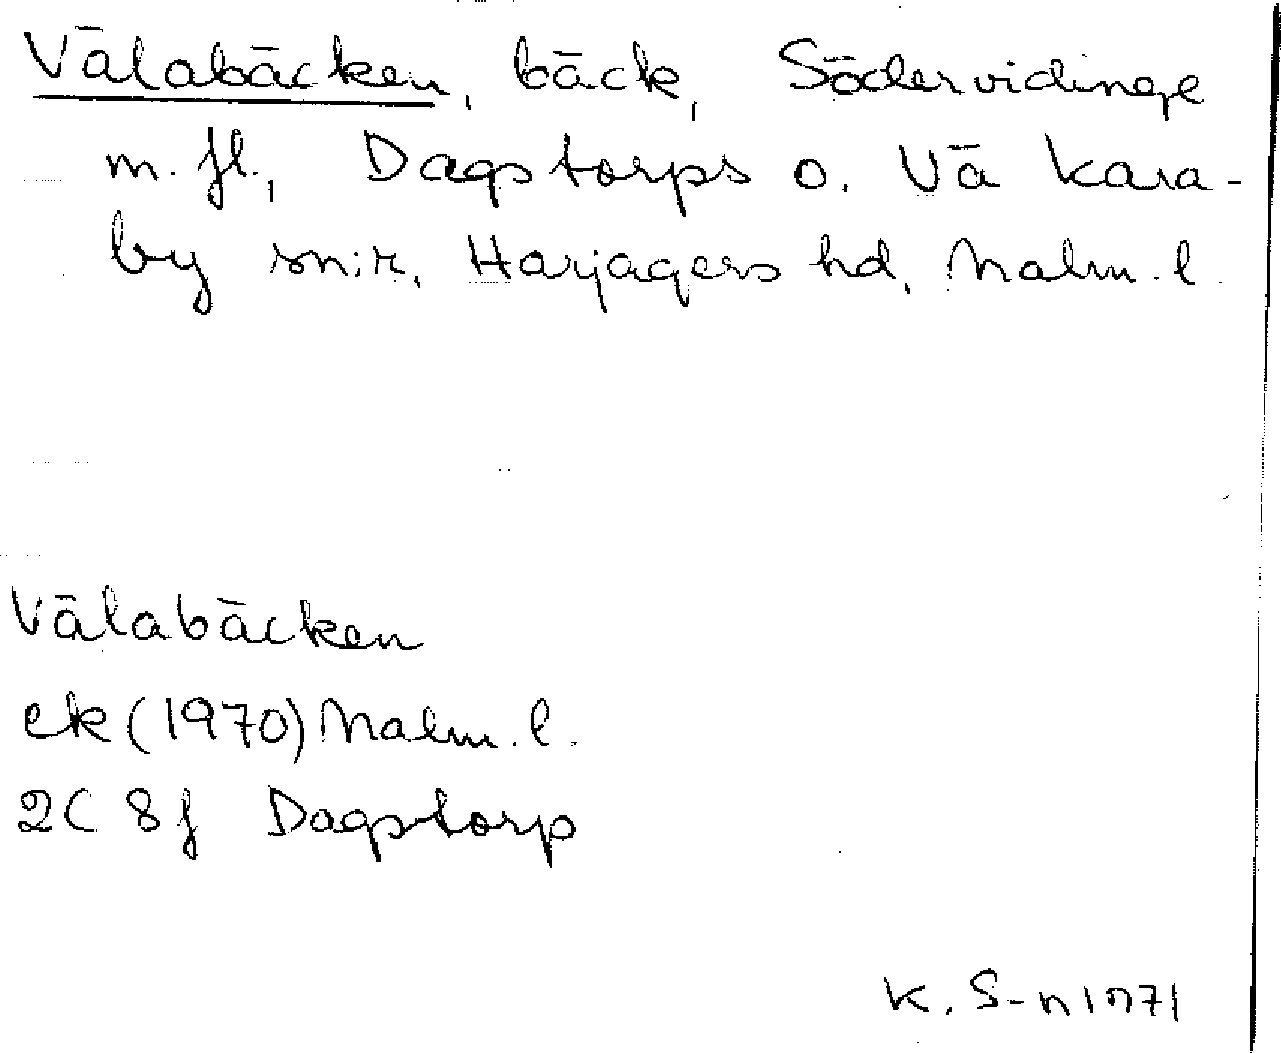 Välabäcken, bäck, Södervidinge
m. fl., Dagstorps o. Vä Kara-
by snir, Harjagers hd, Malm. l
Välabäcken
ek (1970) Malm. l.
2C 8f Dagstorp
K. S-n 1971